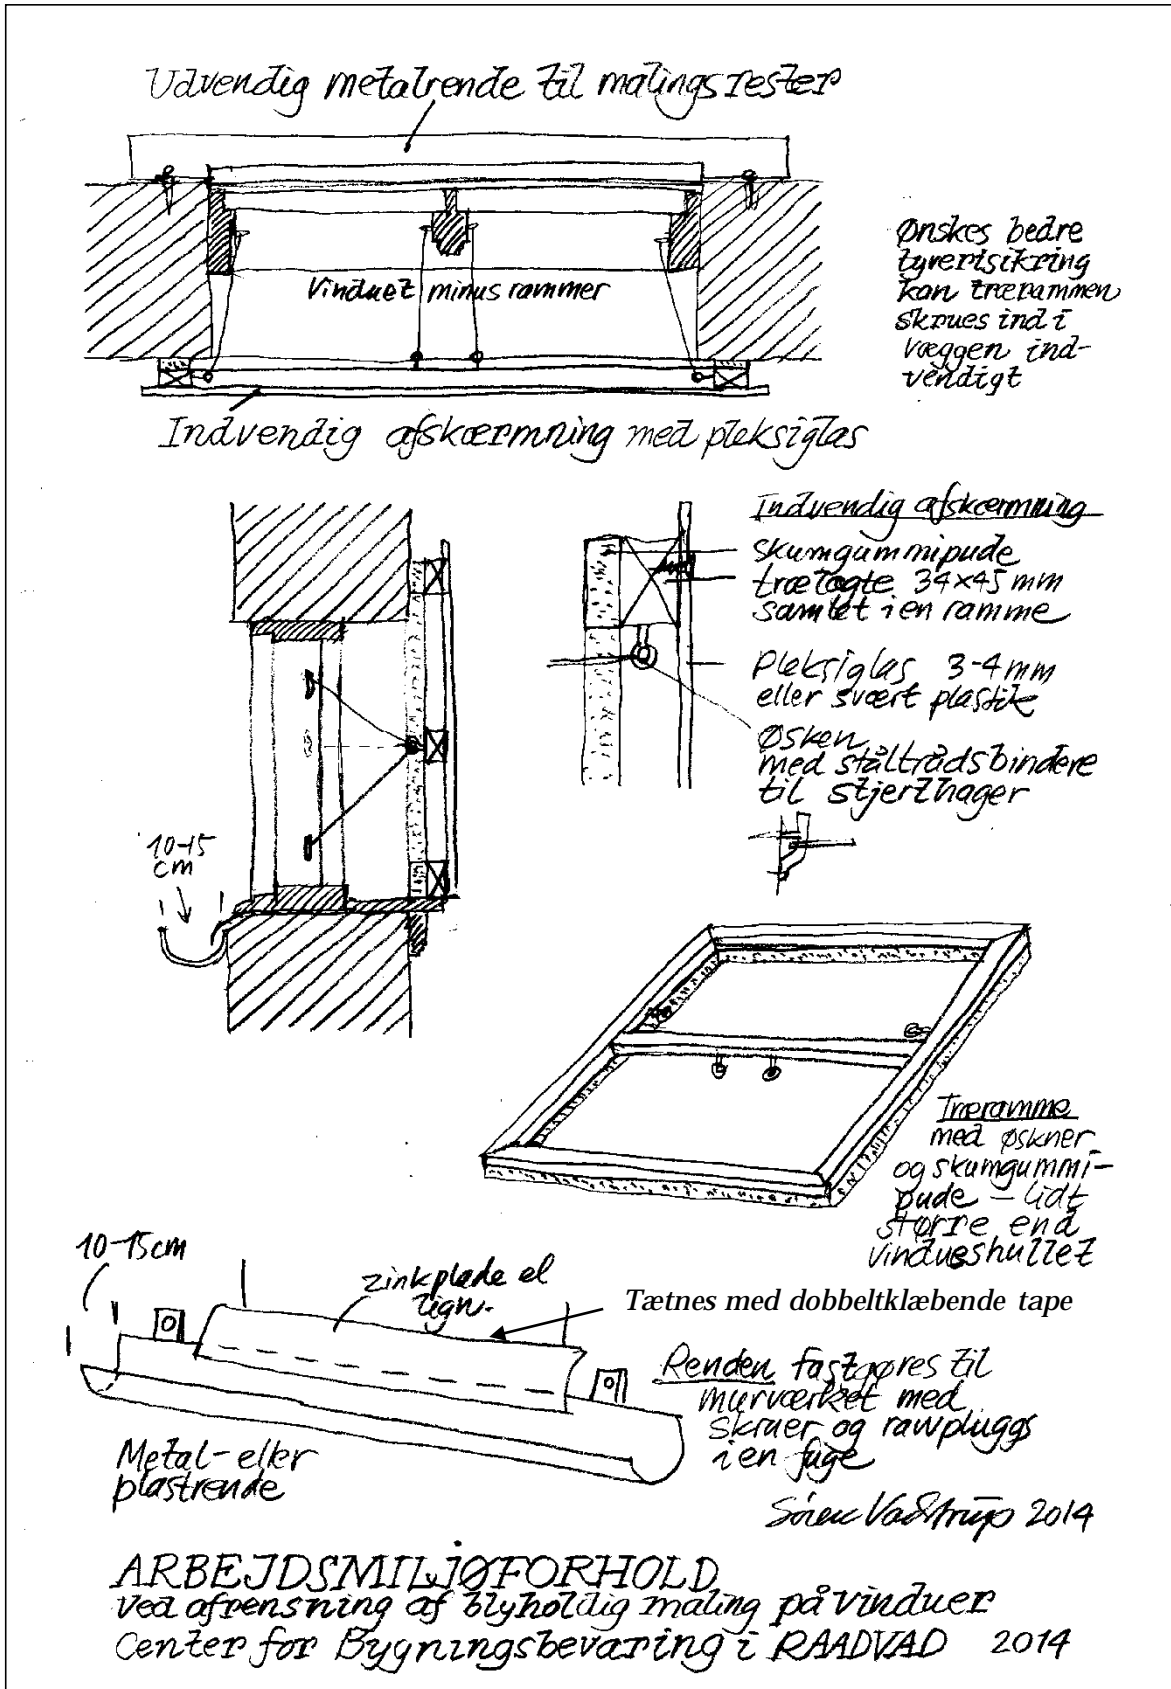 Udvendig metalrende til malingsrester
Vinduet minus rammer
Ønskes bedre
tyverisikring
kan trærammen
skrues ind i
væggen ind-
vendigt
Indvendig afskærmning med pleksiglas
Indvendig afskærmning
skumgummipude
trælægte 34x45 mm
samlet i en ramme
Pleksiglas 3-4 mm
eller svært plastik
Øsken
med ståltrådsbindere
til stjerthager
10-15
cm
Træramme
med øskner
og skumgummi-
pude - lidt
større end
vindueshullet
10-15cm
zinkplade el
lign.
Tætnes med dobbeltklæbende tape
Renden fastgøres til
murværket med
skruer og rawpluggs
i en fuge
Metal- eller
plastrende
Søren Vadstrup 2014
ARBEJDSMILJØFORHOLD
ved afrensning af blyholdig maling på vinduer
Center for Bygningsbevaring i RAADVAD 2014